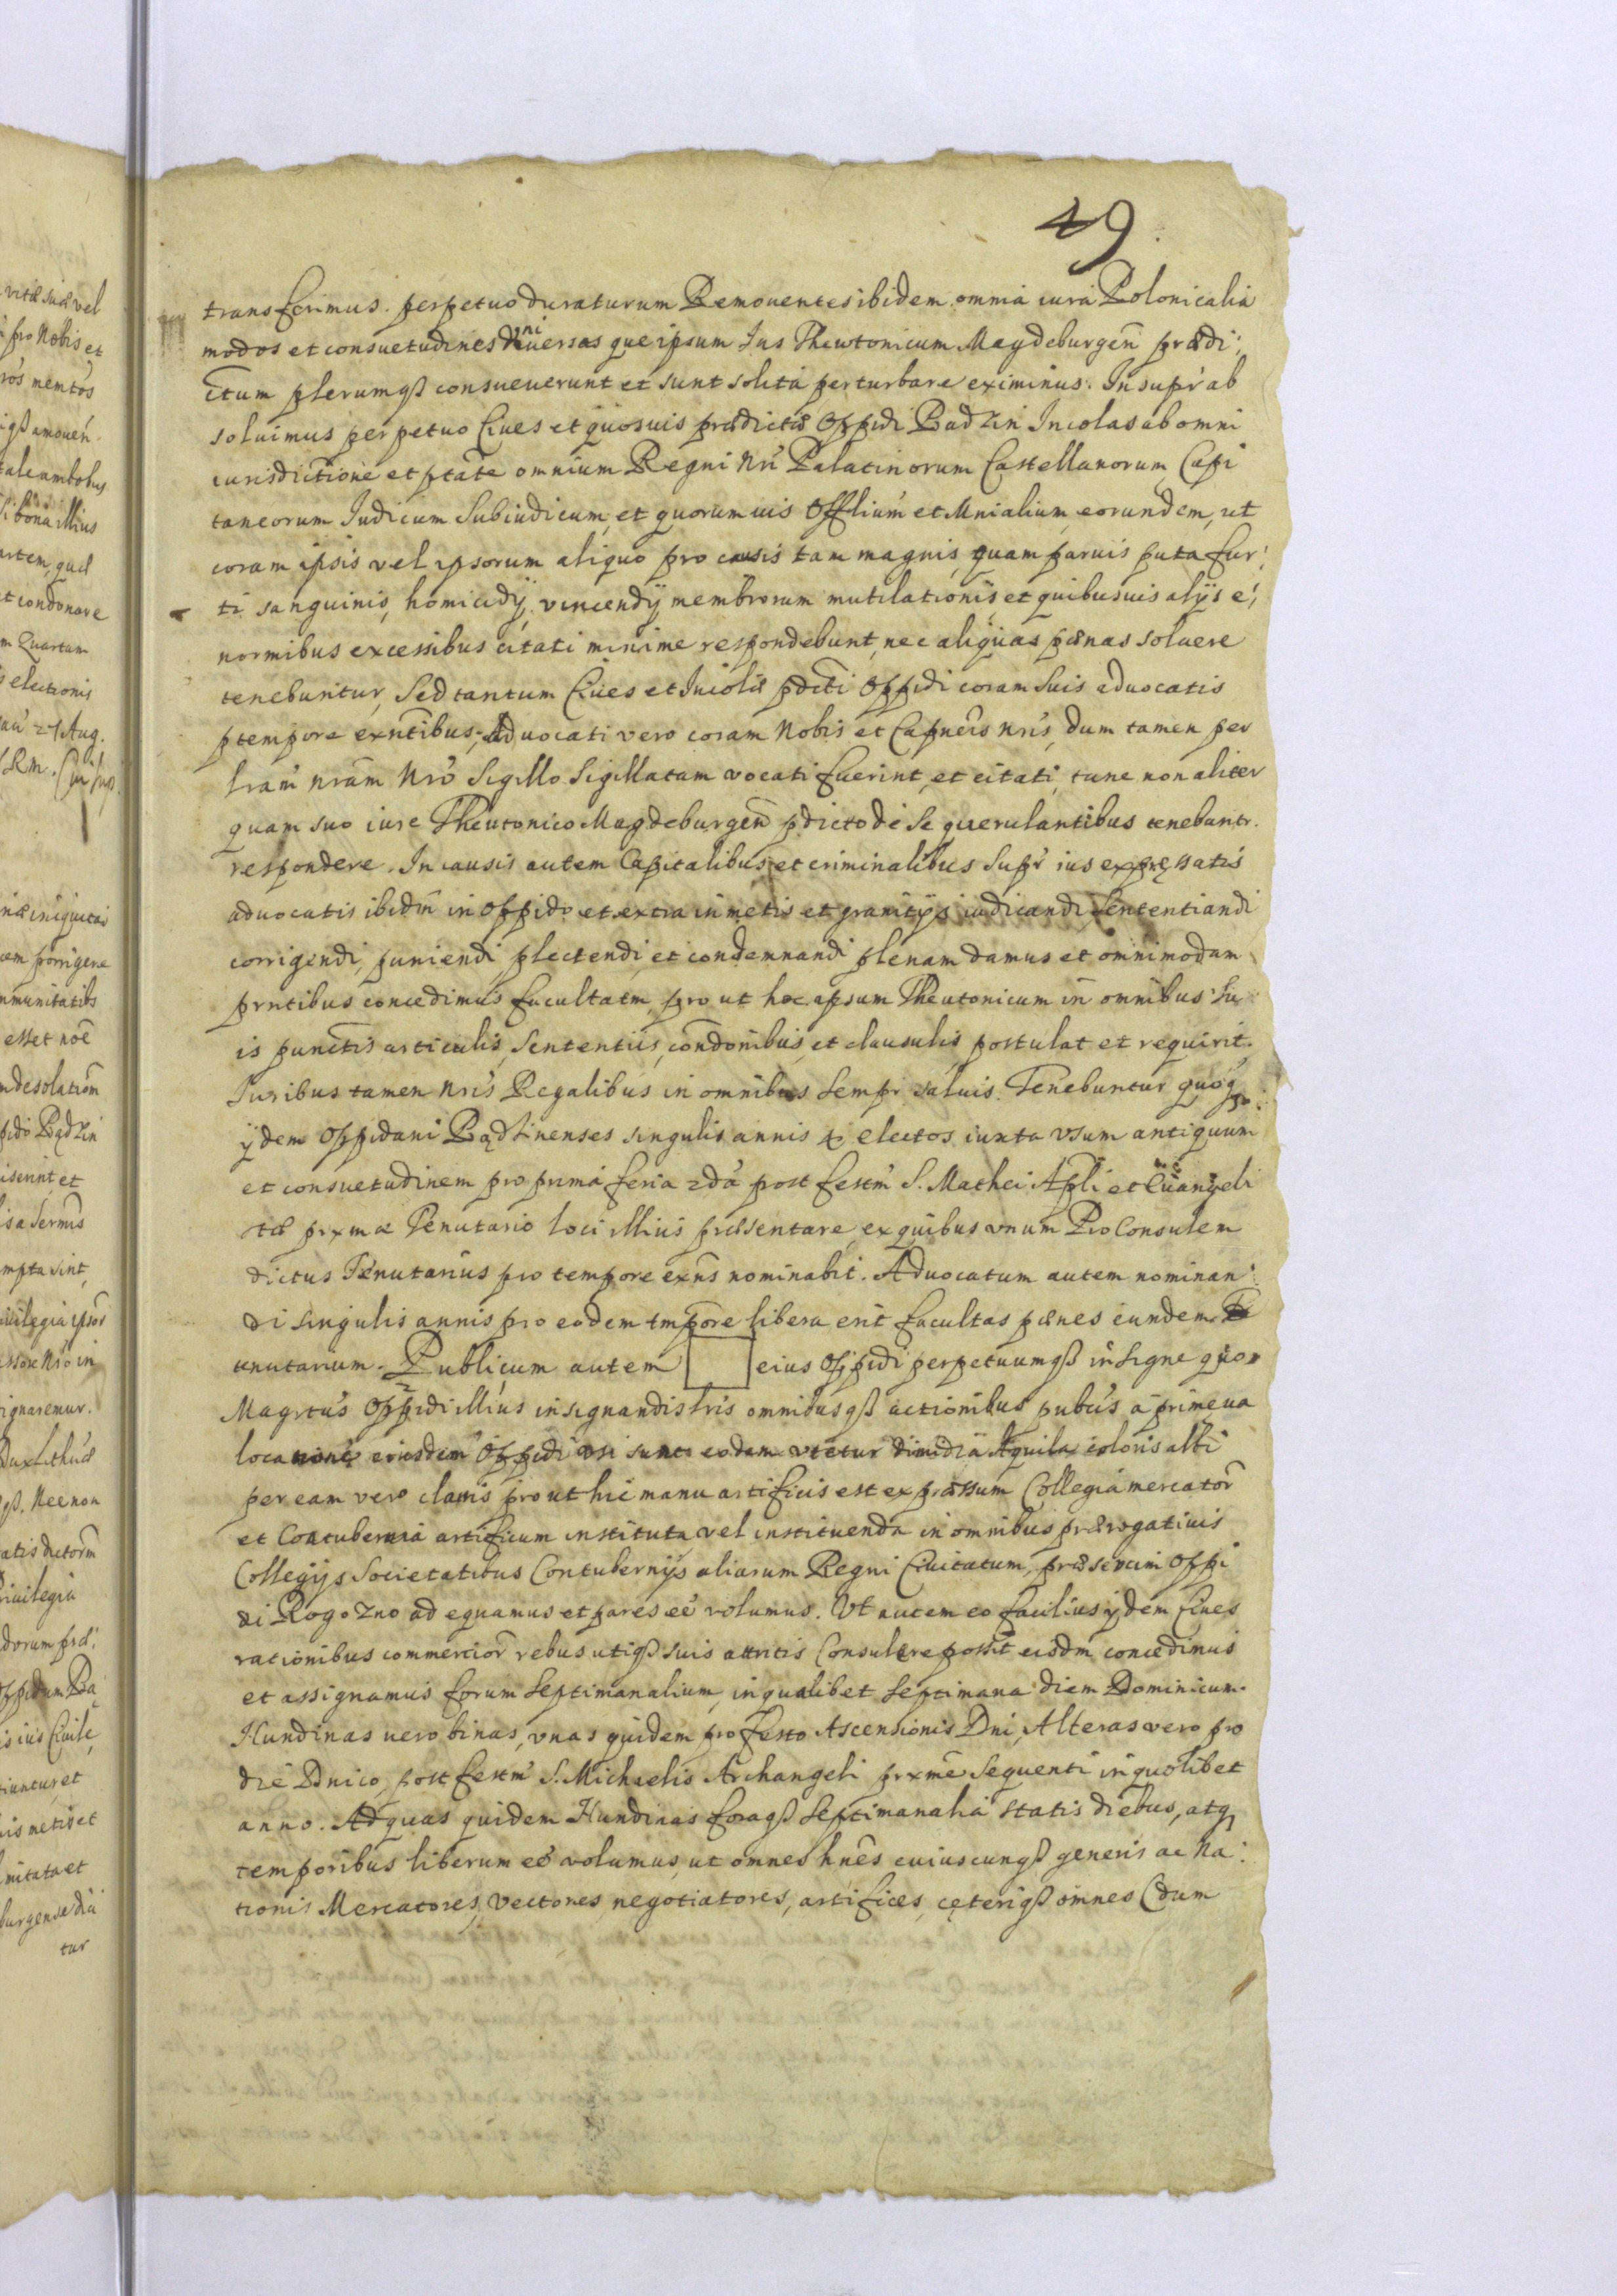 49.
transferimus. perpetuo duraturum Remouentes ibidem omnia iura Polonicalia
modos et consuetudines vniuersas que ipsum Jus Thewtonicum Maydeburgen̄ prædi:
ctum plerumqß consueuerunt et sunt solita perturbare eximinus. Insupr ab
soluimus perpetuo Ciues et quosuis prædictæ Oppidi Badzin Incolas ab omni
iurisdictione et ptāte omnium Regni Nrī Palatinorum Castellanorum Capi
taneorum Judicum Subiudicum, et quorumuis Offlium et Mnialium eorundem, ut
coram ipsis vel ipsorum aliquo pro causis tam magnis, quam paruis puta fur:
ti sanguinis, homicidij, vincendij membrorum mutilationis et quibusuis alijs e:
normibus excessibus citati minime respondebunt, nec aliquas pænas soluere
tenebuntur, Sed tantum Ciues et Incolæ pdcti Oppidi coram Suis aduocatis
ptempore exntibus, Aduocati vero coram Nobis et Capneis Nrīs, dum tamen per
lrām nrām Nrō Sigillo Sigillatam vocati fuerint, et citati, tunc non aliter
quam suo iure Theutonico Magdeburgen̄ pdicto de Se querulantibus tenebuntr.
respondere. In causis autem Capitalibus et criminalibus Supr ius expręssatis
aduocatis ibidm̄ in Oppido et extra in metis et granitijs iudicandi, Sententiandi
corrigendi, puniendi, plectendi, et condemnandi plenam damus et omnimodam
prntibus concedimus facultatm̄, pro ut hoc ipsum Theutonicum in omnibus Su
is punctis articulis, Sententiis, condonibus, et clausulis postulat et requirit.
Juribus tamen Nrīs Regalibus in omnibus Sempr saluis. Tenebuntur quoq
ijdem Oppidani Bądzinenses singulis annis 4 electos iuxta vsum antiquum
et consuetudinem pro prima feria 2da post festm̄ S. Mathei Apli et Euangeli
stæ prxmæ Tenutario loci illius præsentare, ex quibus vnum ProConsulem
dictus Tenutarius pro tempore exns nominabit. Aduocatum autem nominan:
di singulis annis pro eodem tmpore libera erit facultas pænes eundem Te
tenutarium. Publicum autem eius Oppidi perpetuumqß insigne quo
Magrtus Oppidi illius insignandis lris omnibusqß actionibus pubcis a primeua
locatione eiusdem Oppidi vsi sunt eodem vtetur dimidia Aquila coloris albi
per eam vero clauis pro ut hic manu artificis est expræssum Collegia mercator̄
et Contubernia artificum instituta vel instituenda in omnibus prærogatiuis
Collegijs Societatibus Contubernijs aliarum Regni Ciuitatum, præsertim Oppi
di Rogozno adequamus et pares eē volumus. Ut autem eo facilius ijdem Ciues
rationibus commercior̄ rebus utiqß suis attritis Consulere possit eisdm̄ concedimus
et assignamus forum Septimanalium, in qualibet Septimana diem Dominicum.
Nundinas uero binas, vnas quidem pro festo Ascensionis Dni, Alteras vero pro
die Dnico, post festm̄ S. Michaelis Archangeli prxmē Sequenti in quolibet
anno. Ad quas quidem Nundinas foraqß Septimanalia statis diebus, atq
temporibus liberum eē volumus, ut omnes hnēs cuiuscunqß generis ac Na:
tionis Mercatores, Vectores, negotiatores, artifices, cęteriqß omnes (dum